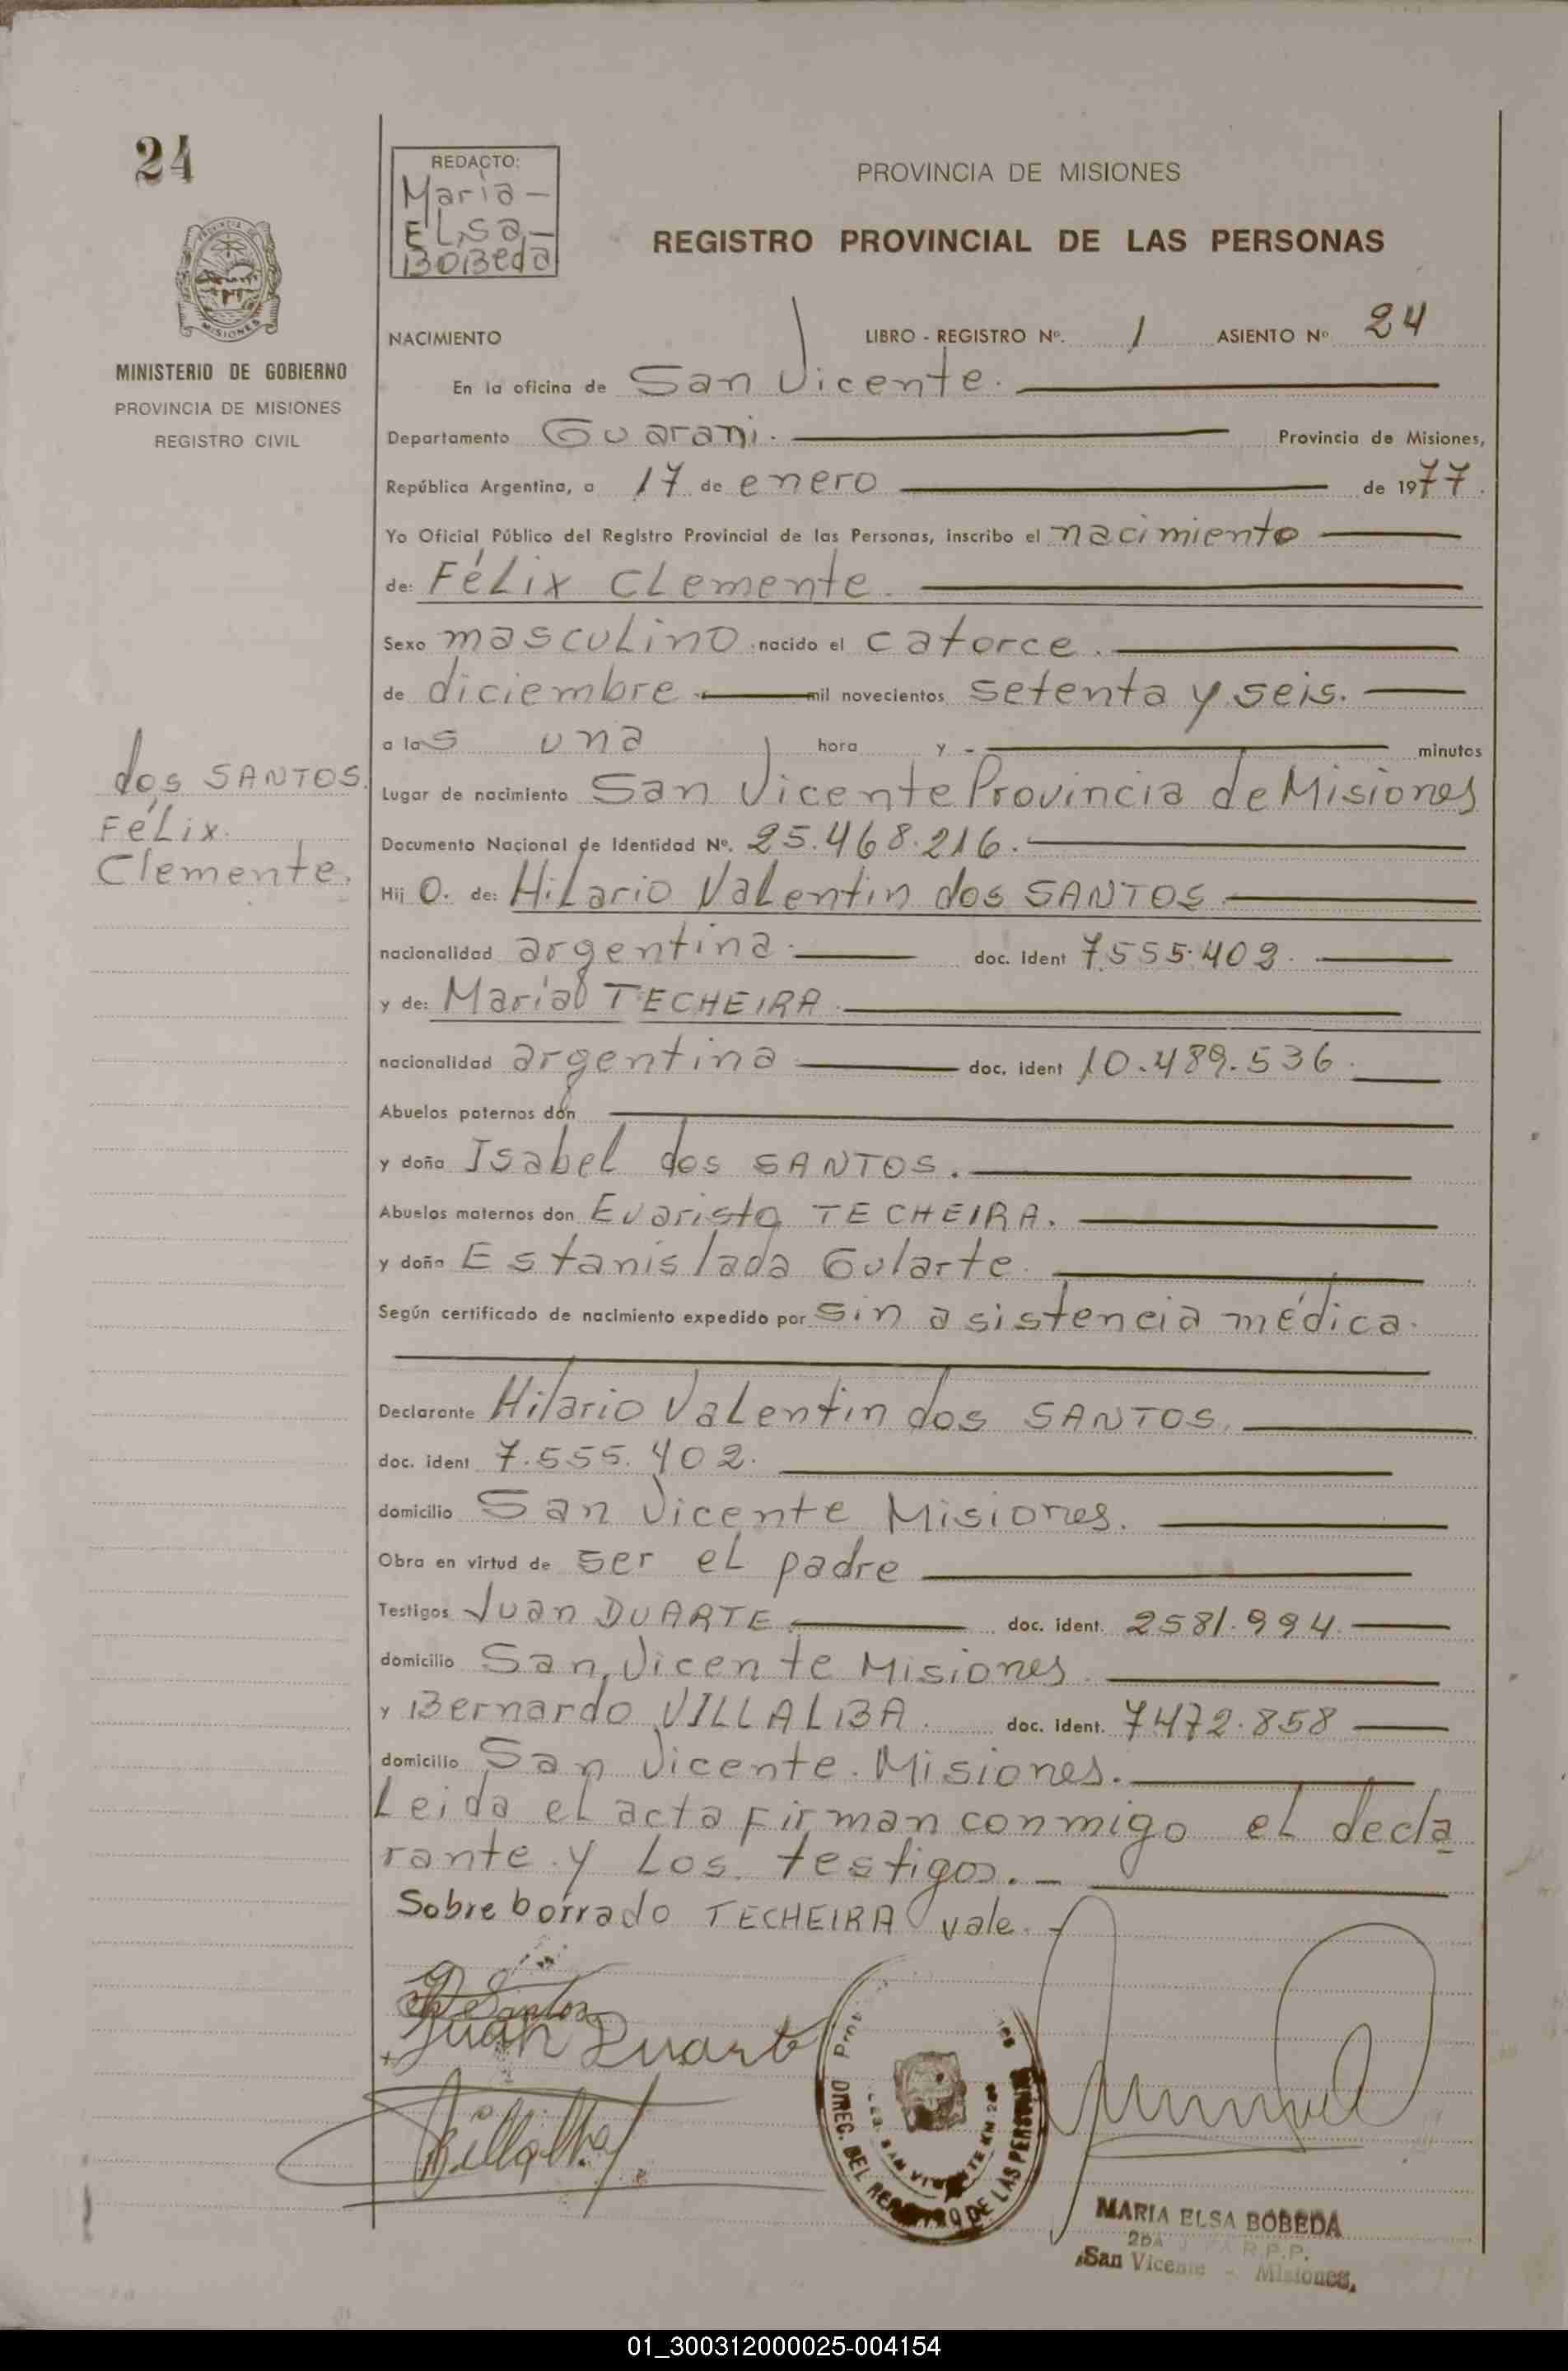 24
REDACTO:
Maria -
ELsa -
BOBeda
PROVINCIA DE MISIONES
REGISTRO PROVINCIAL DE LAS PERSONAS
PROVINCIA DE
MISIONES
MINISTERIO DE GOBIERNO
PROVINCIA DE MISIONES
REGISTRO CIVIL
NACIMIENTO LIBRO - REGISTRO Nº. 1 ASIENTO Nº 24
En la oficina de San Vicente.
Departamento Guarani. Provincia de Misiones,
República Argentina, a 17 de enero de 1977.
Yo Oficial Público del Registro Provincial de las Personas, inscribo el nacimiento
de: Félix Clemente.
Sexo masculino nacido el catorce.
de diciembre mil novecientos setenta y seis.
a las una hora y - minutos
dos SANTOS.
Félix.
Clemente.
Lugar de nacimiento San Vicente Provincia de Misiones
Documento Nacional de Identidad Nº. 25.468.216.
Hijo. de: Hilario Valentin dos SANTOS
nacionalidad argentina. doc. ident 7.555.402.
y de: María TECHEIRA.
nacionalidad argentina doc. ident 10.489.536.
Abuelos paternos don
y doña Isabel dos SANTOS.
Abuelos maternos don Evaristo TECHEIRA.
y doña Estanislada Gularte.
Según certificado de nacimiento expedido por sin asistencia médica.
Declarante Hilario Valentin dos SANTOS.
doc. ident 7.555.402.
domicilio San Vicente Misiones.
Obra en virtud de ser el padre
Testigos Juan DUARTE. doc. ident. 2581.994.
domicilio San Vicente Misiones.
y Bernardo VILLALBA. doc. ident. 7472.858
domicilio San Vicente. Misiones.
Leida el acta firman conmigo el decla
rante y Los testigos. -
Sobre borrado TECHEIRA vale. -
Santos
Juan Duarte
Villalba
DIREC. DEL REGISTRO DE LAS PERSONAS
SAN VICENTE KM 200
MARIA ELSA BOBEDA
R.P.P.
San Vicente - Misiones,
01_300312000025-004154